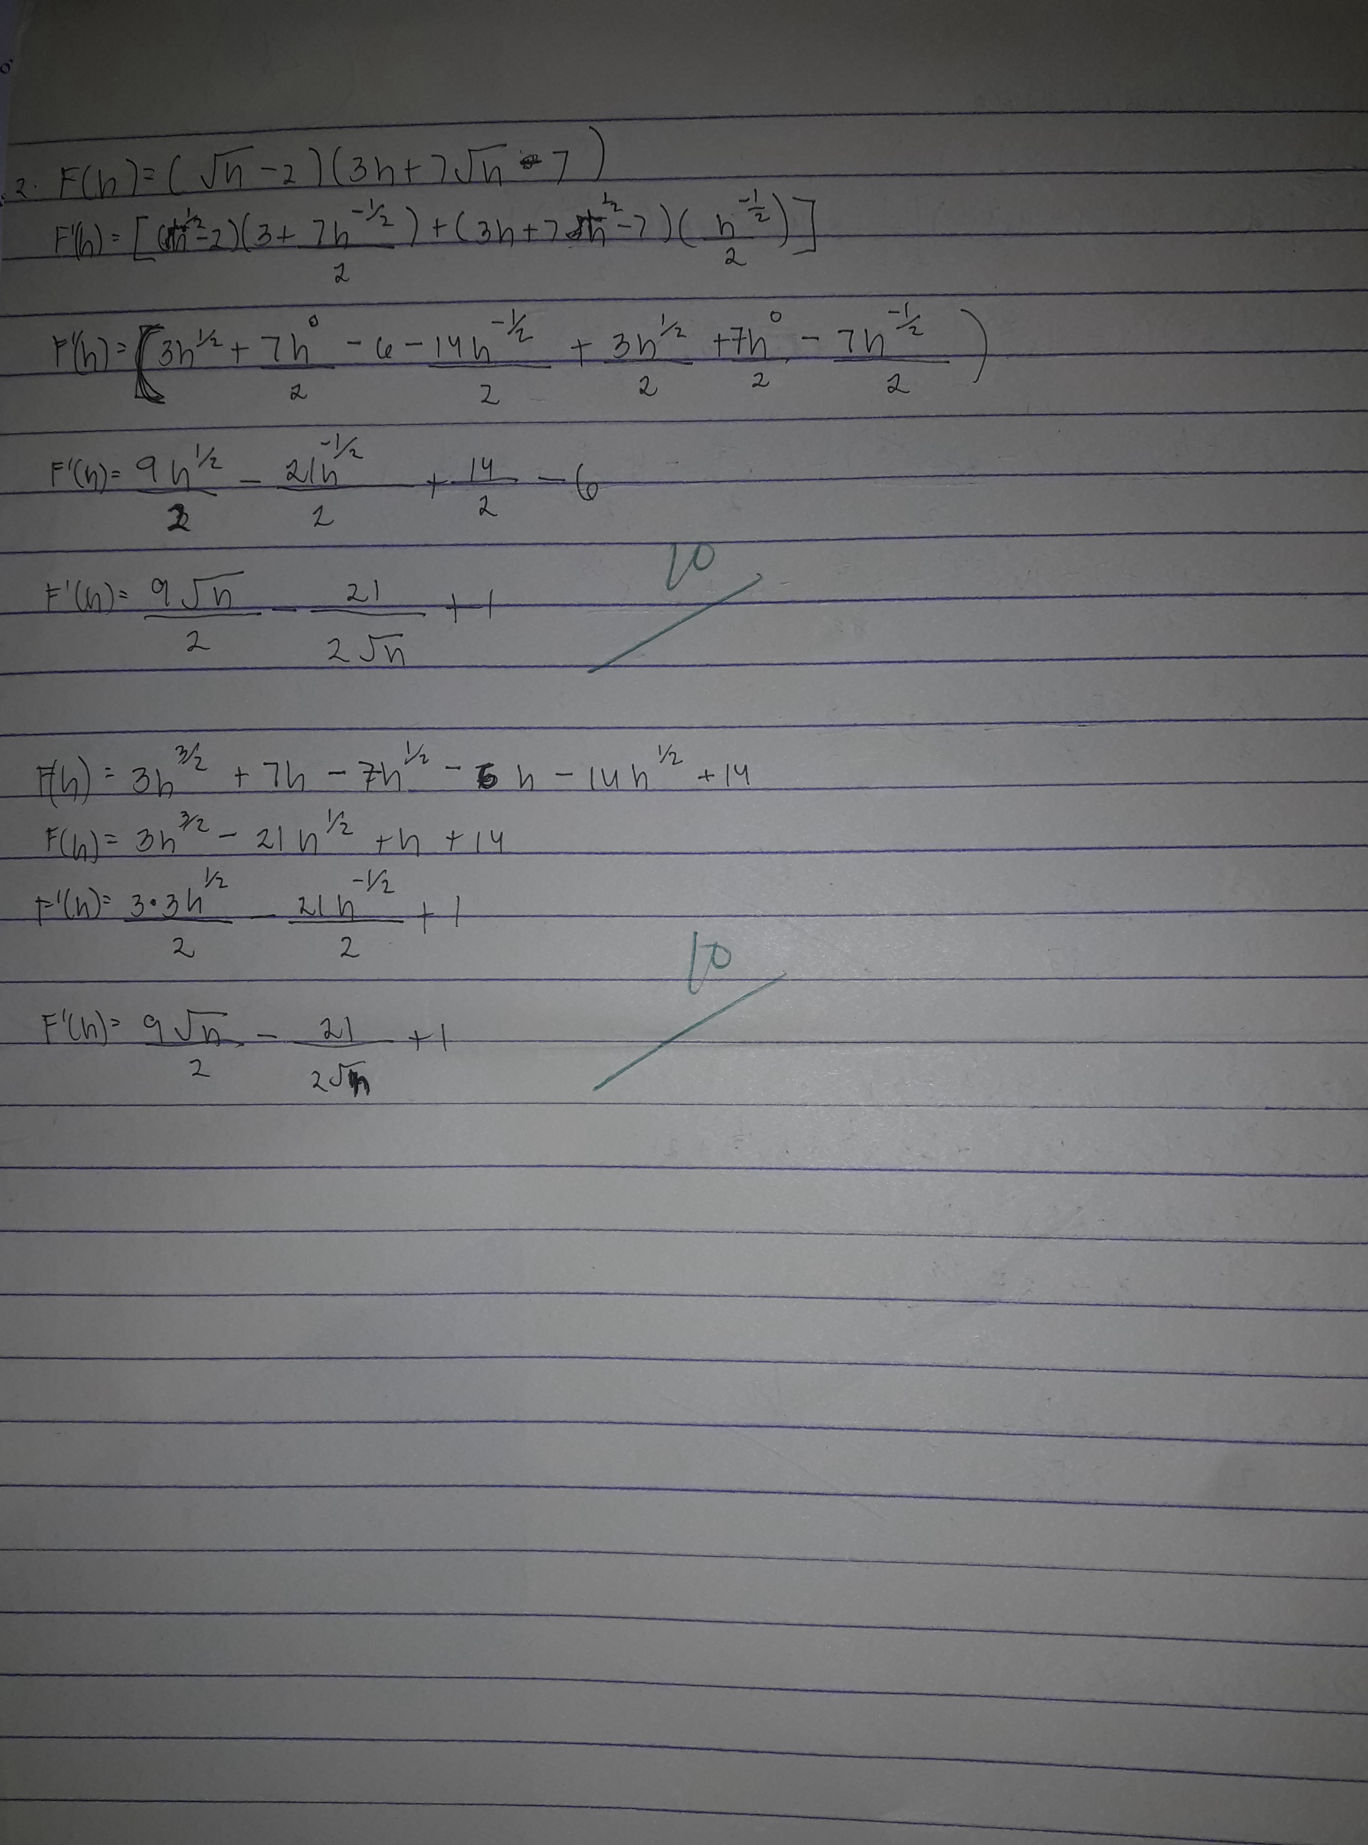 2. F(h)=(√h-2)(3h+7√h-7)
F'(h)=[(h^1/2-2)(3+7h^-1/2/2)+(3h+7h^1/2-7)(h^-1/2/2)]
F'(h)=(3h^1/2+7h^0/2-6-14h^-1/2/2+3h^1/2/2+7h^0/2-7h^-1/2/2)
F'(h)=9h^1/2/2-21h^-1/2/2+14/2-6
10
F'(h)=9√h/2-21/2√h+1
F(h)=3h^3/2+7h-7h^1/2-6h-14h^1/2+14
F(h)=3h^3/2-21h^1/2+h+14
F'(h)=3·3h^1/2/2-21h^-1/2/2+1
10
F'(h)=9√h/2-21/2√h+1